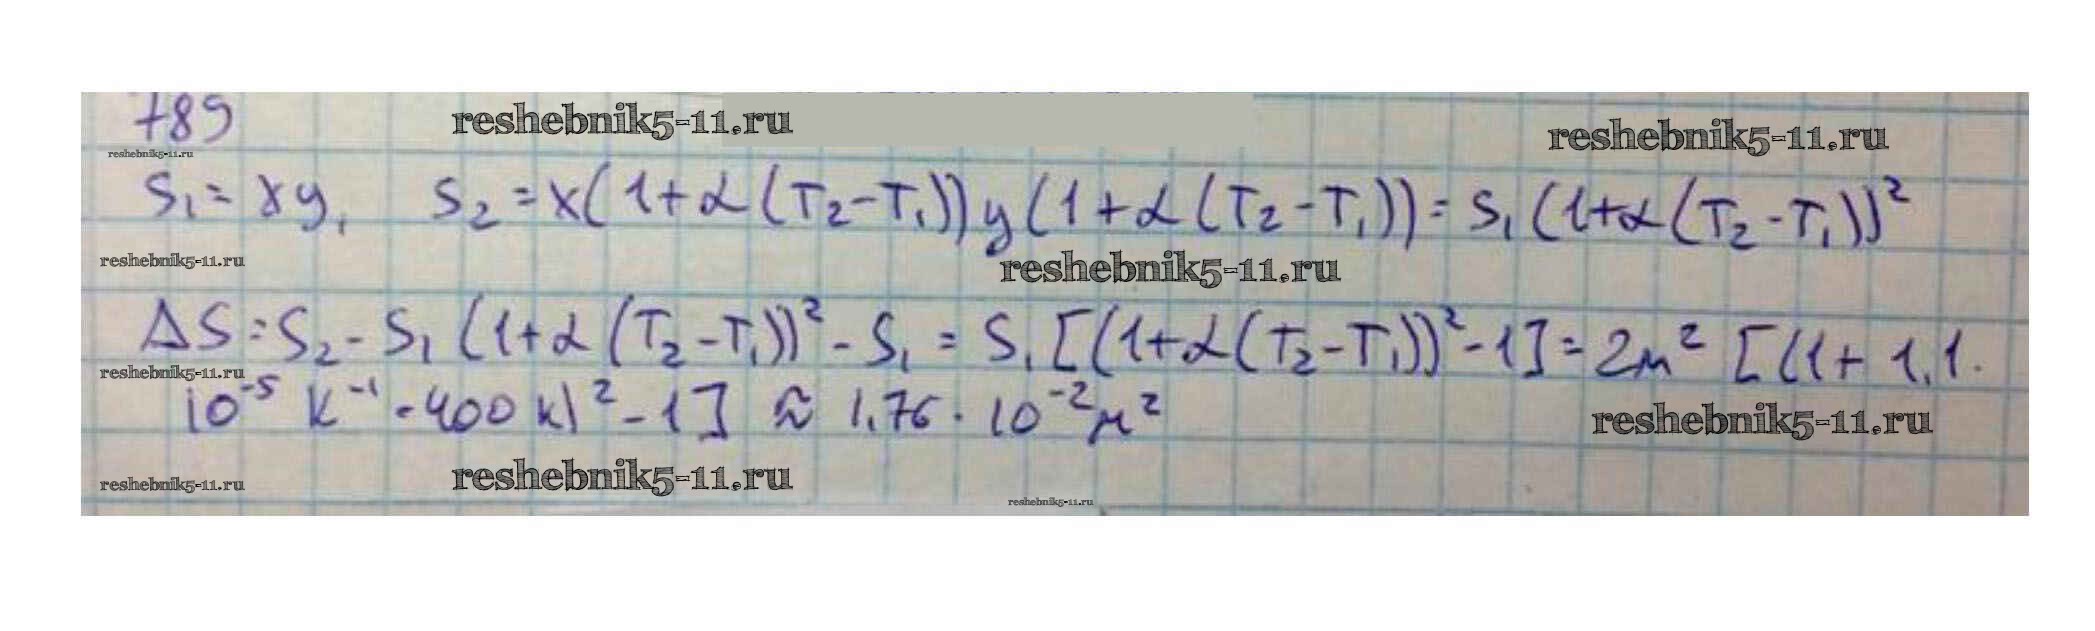 789
reshebnik5-11.ru
reshebnik5-11.ru
reshebnik5-11.ru
S₁ = xy, S₂ = x(1+α(T₂-T₁))y(1+α(T₂-T₁)) = S₁(1+α(T₂-T₁))²
reshebnik5-11.ru
reshebnik5-11.ru
ΔS = S₂ - S₁(1+α(T₂-T₁))² - S₁ = S₁[(1+α(T₂-T₁))²-1] = 2м² [(1+1,1·
reshebnik5-11.ru
10⁻⁵ K⁻¹ · 400 K)² - 1] ≈ 1,76 · 10⁻² м²
reshebnik5-11.ru
reshebnik5-11.ru
reshebnik5-11.ru
reshebnik5-11.ru